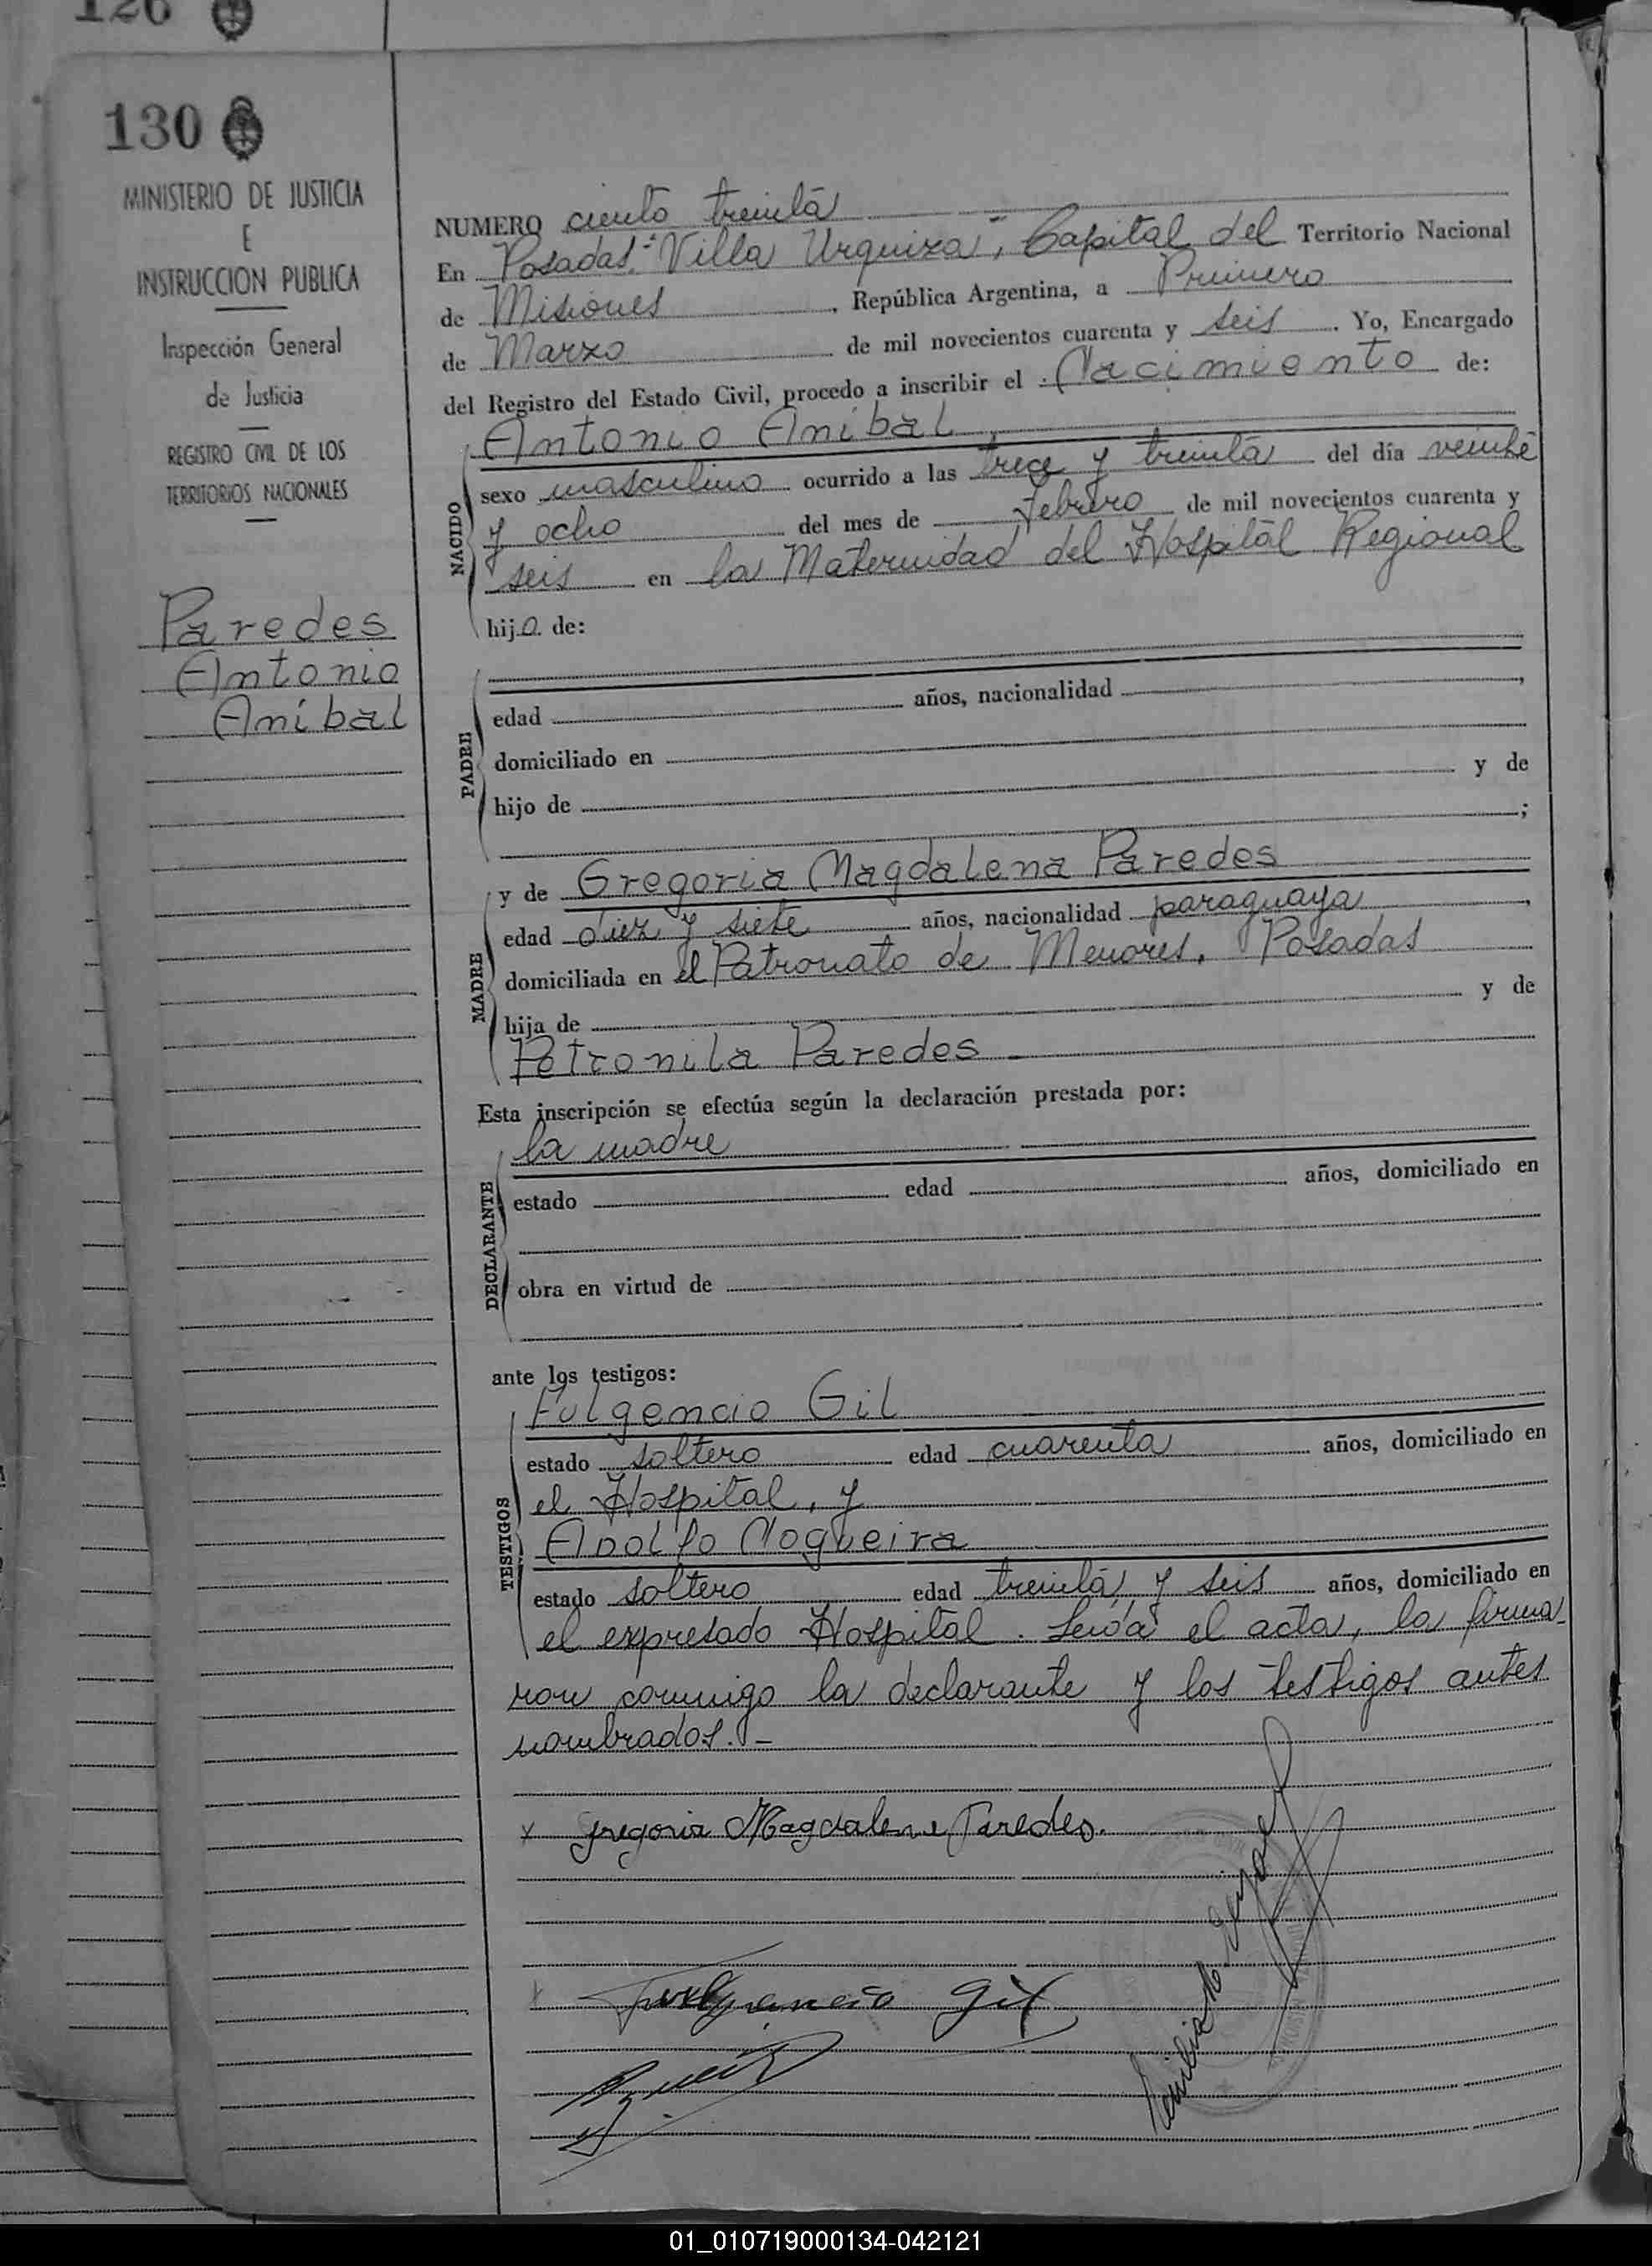 126
130
MINISTERIO DE JUSTICIA
E
INSTRUCCION PUBLICA
Inspección General
de Justicia
REGISTRO CIVIL DE LOS
TERRITORIOS NACIONALES
Paredes
Antonio
Aníbal
NUMERO ciento treinta
En Posadas "Villa Urquiza", Capital del Territorio Nacional
de Misiones, República Argentina, a Primero
de Marzo de mil novecientos cuarenta y seis. Yo, Encargado
del Registro del Estado Civil, procedo a inscribir el Nacimiento de:
NACIDO
Antonio Aníbal,
sexo masculino ocurrido a las trece y treinta del día veinte
y ocho del mes de febrero de mil novecientos cuarenta y
seis en la Maternidad del Hospital Regional
hijo de:
PADRE
edad años, nacionalidad ,
domiciliado en
hijo de y de
;
MADRE
y de Gregoria Magdalena Paredes
edad diez y siete años, nacionalidad paraguaya,
domiciliada en el Patronato de Menores, Posadas
hija de y de
Petronila Paredes -
Esta inscripción se efectúa según la declaración prestada por:
DECLARANTE
la madre
estado edad años, domiciliado en
obra en virtud de
ante los testigos:
TESTIGOS
Fulgencio Gil
estado soltero edad cuarenta años, domiciliado en
el Hospital, y
Adolfo Nogueira
estado soltero edad treinta y seis años, domiciliado en
el expresado Hospital. Leída el acta, la firma-
ron conmigo la declarante y los testigos antes
nombrados. -
x Gregoria Magdalena Paredes.
Fulgencio Gil
01_010719000134-042121